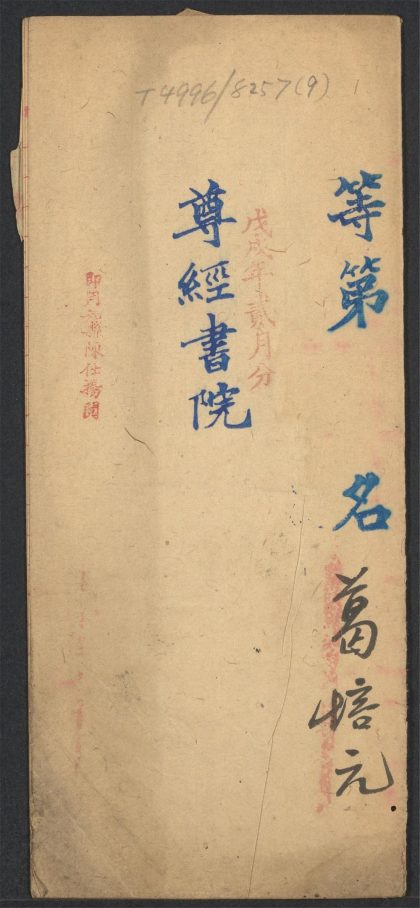 T4996/8257(9)
等第 名 葛培元
戊戌年貳月分
尊經書院
即用知縣陳仕閱